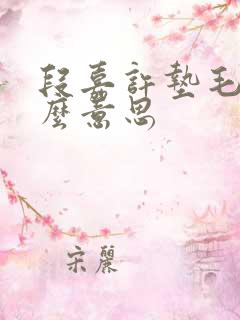 段嘉許墊毛
麼意思
宋麗